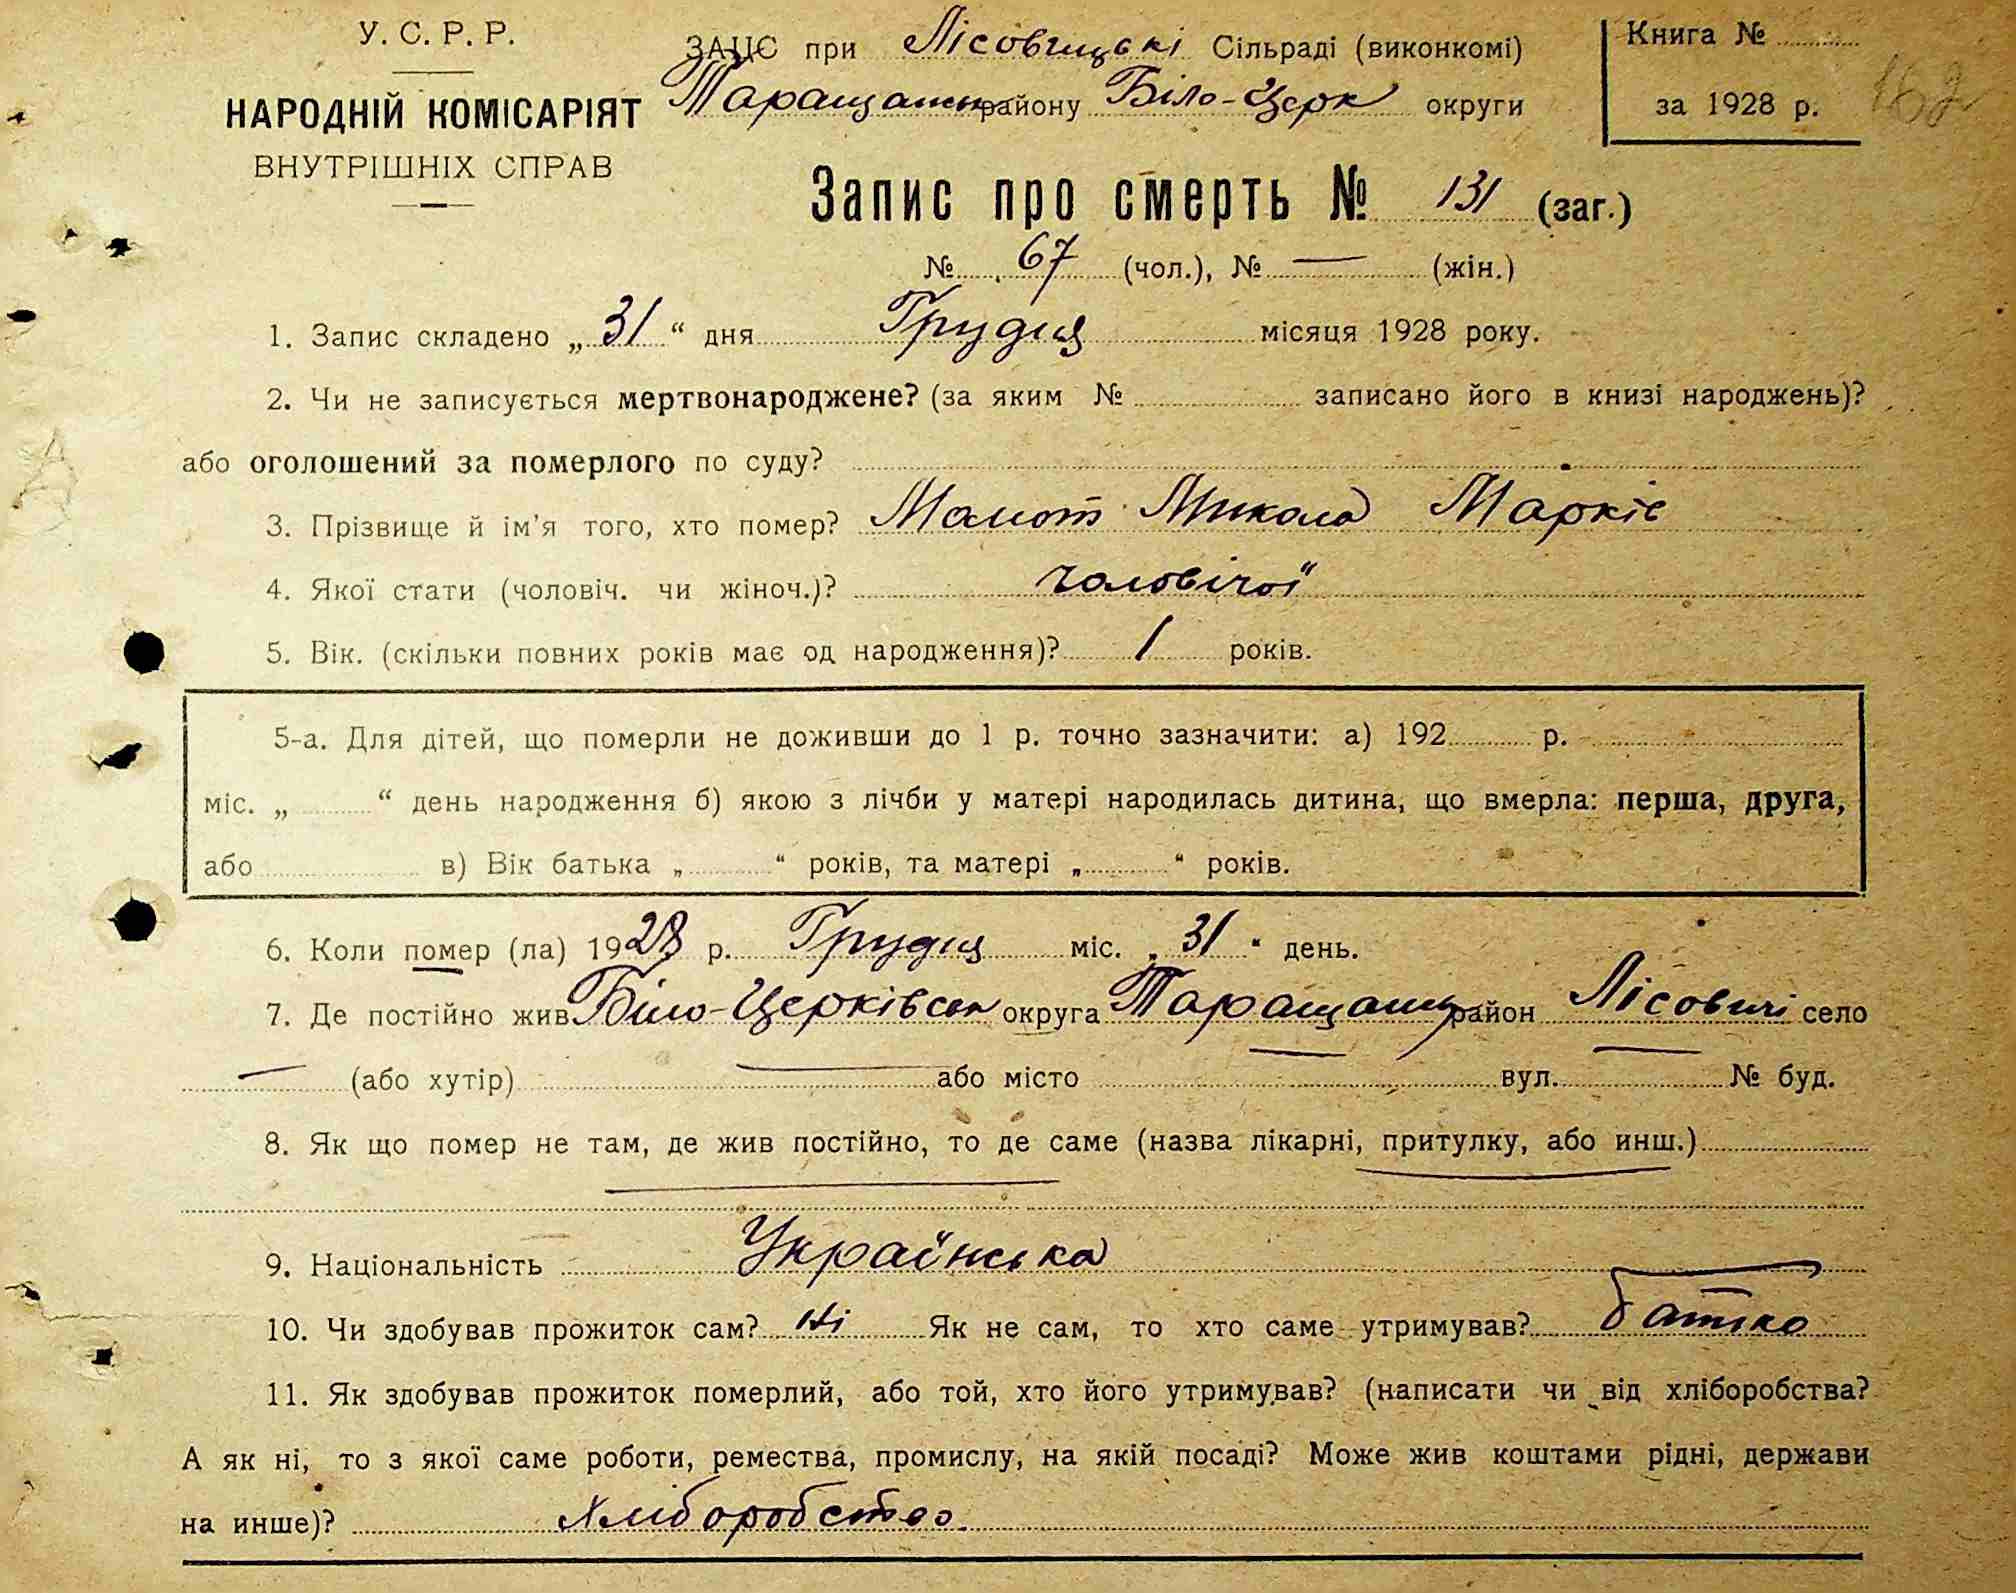 У. С. Р. Р.
НАРОДНІЙ КОМІСАРІЯТ
ВНУТРІШНІХ СПРАВ
ЗАЦС при Лісовицькі Сільраді (виконкомі)
Таращанськ району Біло-Церк округи
Книга №
за 1928 р.
162
Запис про смерть № 131 (заг.)
№ 67 (чол.), № — (жін.)
1. Запис складено „31“ дня Грудня місяця 1928 року.
2. Чи не записується мертвонароджене? (за яким № записано його в книзі народжень)?
або оголошений за померлого по суду?
3. Прізвище й ім'я того, хто помер? Микола Маркіє
4. Якої стати (чоловіч. чи жіноч.)? чоловічої
5. Вік. (скільки повних років має од народження)? 1 років.
5-а. Для дітей, що померли не доживши до 1 р. точно зазначити: а) 192 р.
міс. „ “ день народження б) якою з лічби у матері народилась дитина, що вмерла: перша, друга,
або в) Вік батька „ “ років, та матері „ “ років.
6. Коли помер (ла) 1928 р. Грудня міс. „31“ день.
7. Де постійно жив Біло-Церківськ округа Таращанськ район Лісовичі село
— (або хутір) — або місто вул. № буд.
8. Як що помер не там, де жив постійно, то де саме (назва лікарні, притулку, або инш.)
9. Національність Українська
10. Чи здобував прожиток сам? Ні Як не сам, то хто саме утримував? батько
11. Як здобував прожиток померлий, або той, хто його утримував? (написати чи від хліборобства?
А як ні, то з якої саме роботи, ремества, промислу, на якій посаді? Може жив коштами рідні, держави
на инше)? Хліборобство.